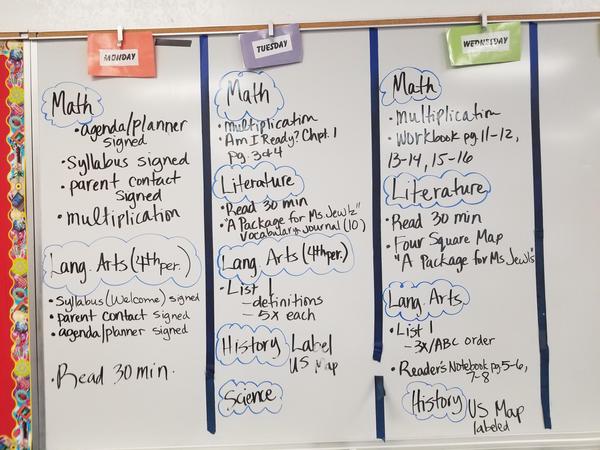 MONDAY
Math
• agenda/planner
signed
• Syllabus signed
• parent contact
signed
• multiplication
Lang. Arts (4th per.)
• Syllabus (Welcome) signed
• parent contact signed
• agenda/planner signed
• Read 30 min.
TUESDAY
Math
• multiplication
• Am I Ready? Chpt. 1
pg. 3 & 4
Literature
• Read 30 min
• "A Package for Ms. Jewlz"
vocabulary journal (10)
Lang. Arts (4th per.)
• List 1
- definitions
- 5x each
History Label
US Map
Science
WEDNESDAY
Math
• multiplication
• Workbook pg. 11-12,
13-14, 15-16
Literature
• Read 30 min
• Four Square Map
"A Package for Ms. Jewls"
Lang. Arts
• List 1
- 3x/ABC order
• Reader's Notebook pg. 5-6,
7-8
History US Map
labeled